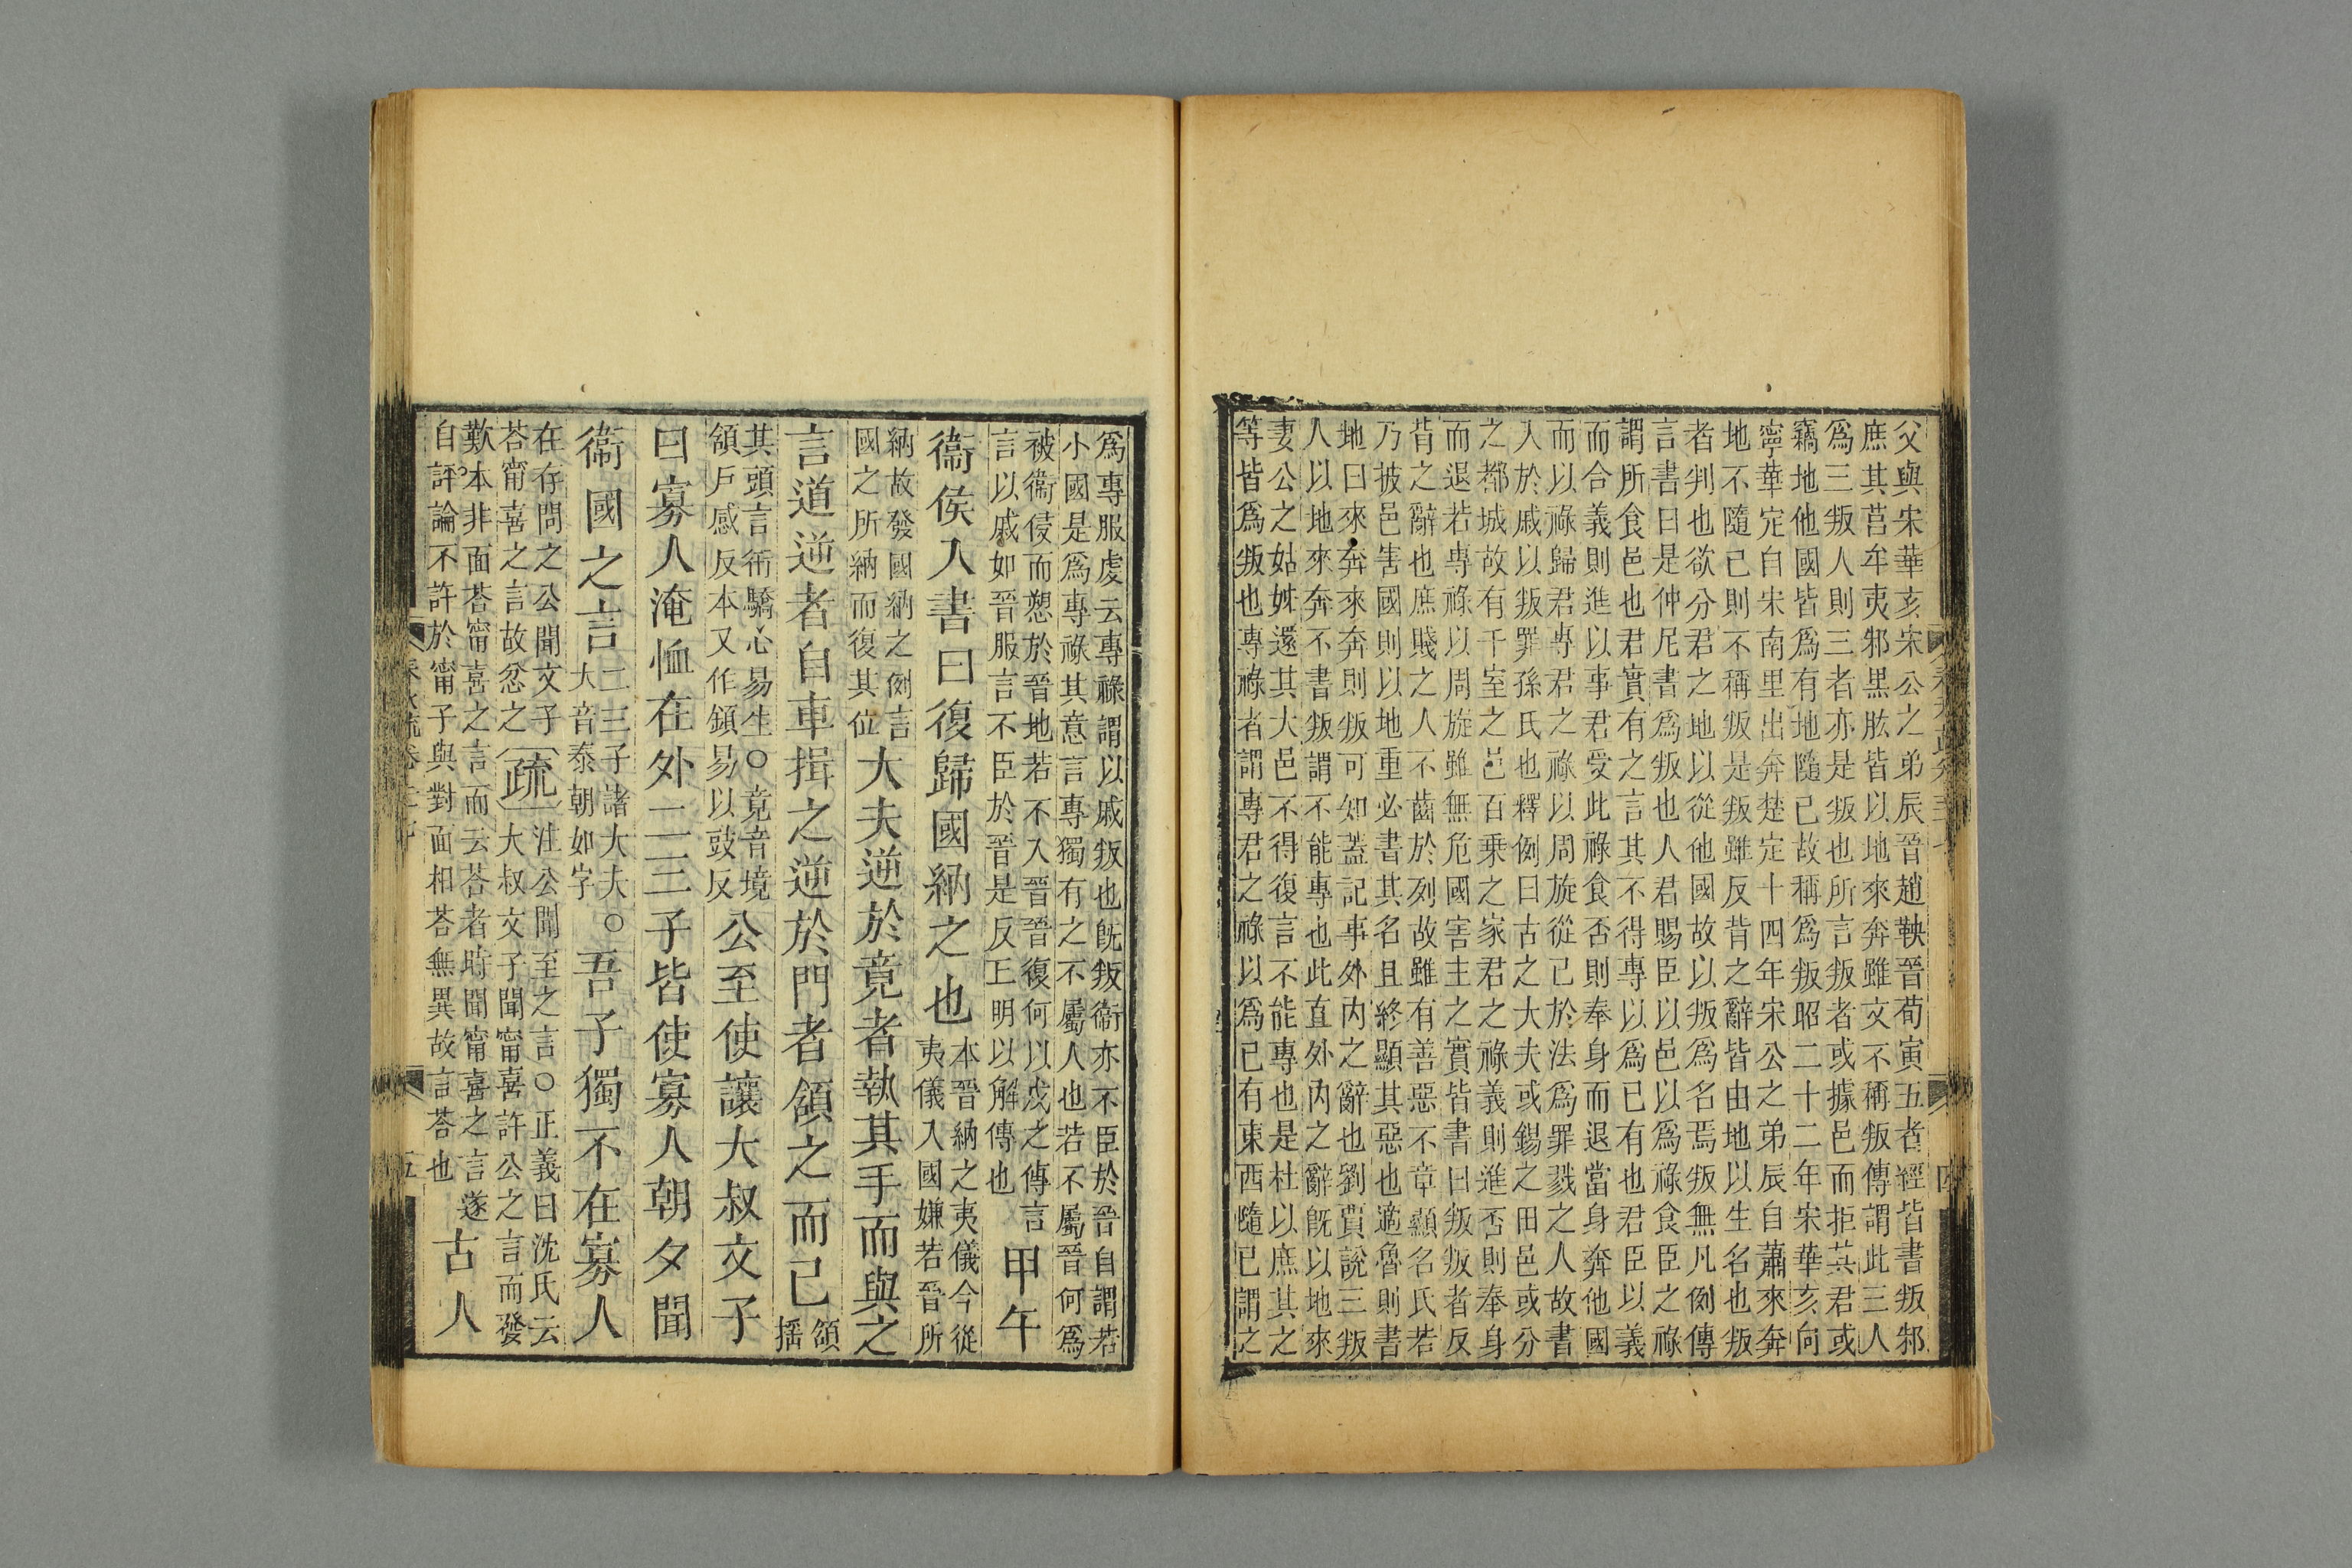 父與宋華亥宋公之弟辰晉趙鞅晉荀寅五者經皆書叛邾
庶其莒牟夷邾黑肱皆以地來奔雖文不稱叛傳謂此三人
爲三叛人則三者亦是叛也所言叛者或據邑而拒其君或
竊地他國皆爲有地隨已故稱爲叛昭二十二年宋華亥向
寧華定自宋南里出奔楚定十四年宋公之弟辰自蕭來奔
地不隨己則不稱叛是叛雖反背之辭皆由地以生名也叛
者判也欲分君之地以從他國故以叛爲名焉叛無凡例傳
言書曰是仲尼書爲叛也人君賜臣以邑以爲祿食臣之祿
謂所食邑也君實有之言其不得專以爲已有也君臣以義
而合義則進以事君受此祿食否則奉身而退當身奔他國
而以祿歸君專君之祿以周旋從已於法爲罪戮之人故書
入於戚以叛罪孫氏也釋例曰古之大夫或錫之田邑或分
之都城故有千室之邑百乘之家君之祿義則進否則奉身
而退若專祿以周旋雖無危國害主之實皆書曰叛叛者反
背之辭也庶賤之人不齒於列故雖有善惡不章顯名氏若
乃披邑害國則以地重必書其名且終顯其惡也適魯則書
地曰來奔來奔則叛可知蓋記事外內之辭也劉賈說三叛
人以地來奔不書叛謂不能專也此直外內之辭旣以地來
妻公之姑姊還其大邑不得復言不能專也是杜以庶其之
等皆爲叛也專祿者謂專君之祿以爲已有東西隨已謂之
爲專服虔云專祿謂以戚叛也旣叛衞亦不臣於晉自謂若
小國是爲專祿其意言專獨有之不屬人也若不屬晉何爲
被衞侵而愬於晉地若不入晉晉復何以戍之傳言
言以戚如晉服言不臣於晉是反王明以解傳也
甲午
衞侯入書曰復歸國納之也
本晉納之夷儀今從
夷儀入國嫌若晉所
納故發國納之例言
國之所納而復其位
大夫逆於竟者執其手而與之
言道逆者自車揖之逆於門者頷之而已
頷
搖
其頭言衎驕心易生○竟音境
頷戶感反本又作頷易以豉反
公至使讓大叔文子
曰寡人淹恤在外二三子皆使寡人朝夕聞
衞國之言
二三子諸大夫○
大音泰朝如字
吾子獨不在寡人
在存問之公聞文子
荅甯喜之言故忿之
疏
注公聞至之言○正義曰沈氏云
大叔文子聞甯喜許公之言而發
歎本非面荅甯喜之言而云荅者時聞甯喜之言遂
自評論不許於甯子與對面相荅無異故言荅也
古人